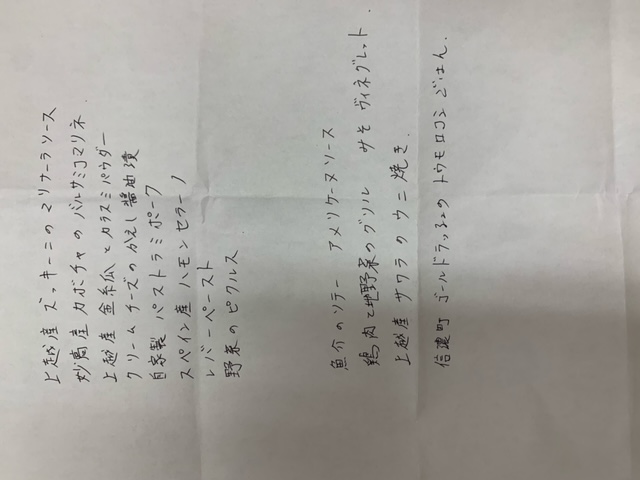 上越産 ズッキーニのマリナーラソース
妙高産 カボチャのバルサミコマリネ
上越産 金糸瓜とカラスミパウダー
クリームチーズのかえし醤油漬
自家製 パストラミポーク
スペイン産 ハモンセラーノ
レバーペースト
野菜のピクルス
魚介のソテー アメリケーヌソース
鶏肉と地野菜のグリル みそヴィネグレット
上越産 サワラのウニ焼き
信濃町 ゴールドラッシュのトウモロコシごはん